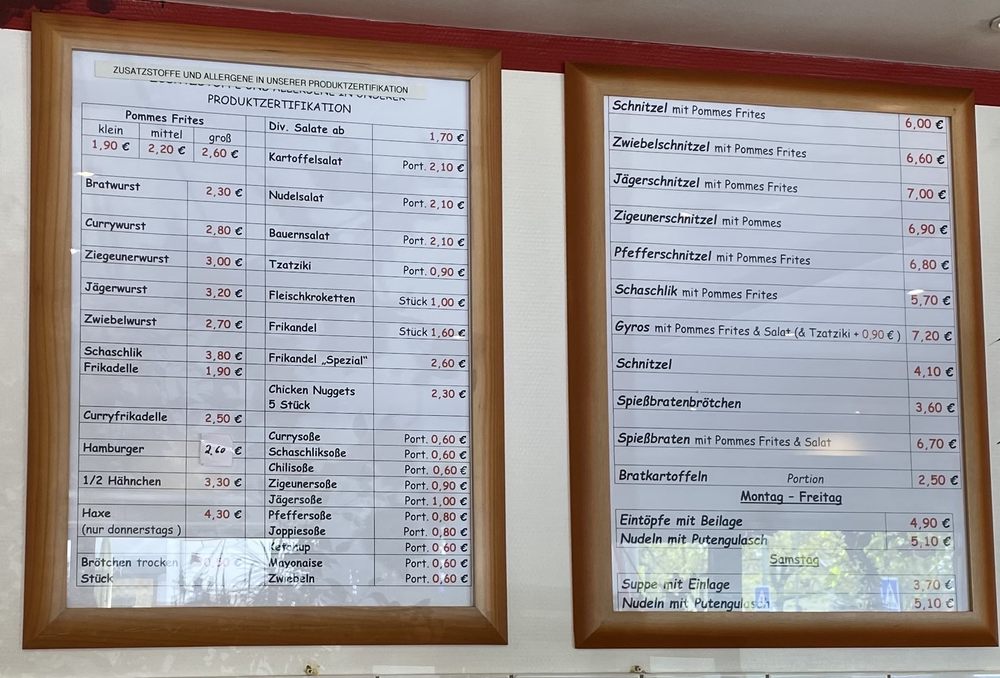 ZUSATZSTOFFE UND ALLERGENE IN UNSERER PRODUKTZERTIFIKATION
ZUSATZSTOFFE UND ALLERGENE IN UNSERER
PRODUKTZERTIFIKATION
Pommes Frites
klein mittel groß
1,90 € 2,20 € 2,60 €
Bratwurst 2,30 €
Currywurst 2,80 €
Ziegeunerwurst 3,00 €
Jägerwurst 3,20 €
Zwiebelwurst 2,70 €
Schaschlik 3,80 €
Frikadelle 1,90 €
Curryfrikadelle 2,50 €
Hamburger 2,60 €
1/2 Hähnchen 3,30 €
Haxe 4,30 €
(nur donnerstags )
Brötchen trocken 0,30 €
Stück
Div. Salate ab 1,70 €
Kartoffelsalat Port. 2,10 €
Nudelsalat Port. 2,10 €
Bauernsalat Port. 2,10 €
Tzatziki Port. 0,90 €
Fleischkroketten Stück 1,00 €
Frikandel Stück 1,60 €
Frikandel „Spezial“ 2,60 €
Chicken Nuggets 2,30 €
5 Stück
Currysoße Port. 0,60 €
Schaschliksoße Port. 0,60 €
Chilisoße Port. 0,60 €
Zigeunersoße Port. 0,90 €
Jägersoße Port. 1,00 €
Pfeffersoße Port. 0,80 €
Joppiesoße Port. 0,80 €
Ketchup Port. 0,60 €
Mayonaise Port. 0,60 €
Zwiebeln Port. 0,60 €
Schnitzel mit Pommes Frites 6,00 €
Zwiebelschnitzel mit Pommes Frites 6,60 €
Jägerschnitzel mit Pommes Frites 7,00 €
Zigeunerschnitzel mit Pommes 6,90 €
Pfefferschnitzel mit Pommes Frites 6,80 €
Schaschlik mit Pommes Frites 5,70 €
Gyros mit Pommes Frites & Salat (& Tzatziki + 0,90 € ) 7,20 €
Schnitzel 4,10 €
Spießbratenbrötchen 3,60 €
Spießbraten mit Pommes Frites & Salat 6,70 €
Bratkartoffeln Portion 2,50 €
Montag - Freitag
Eintöpfe mit Beilage 4,90 €
Nudeln mit Putengulasch 5,10 €
Samstag
Suppe mit Einlage 3,70 €
Nudeln mit Putengulasch 5,10 €